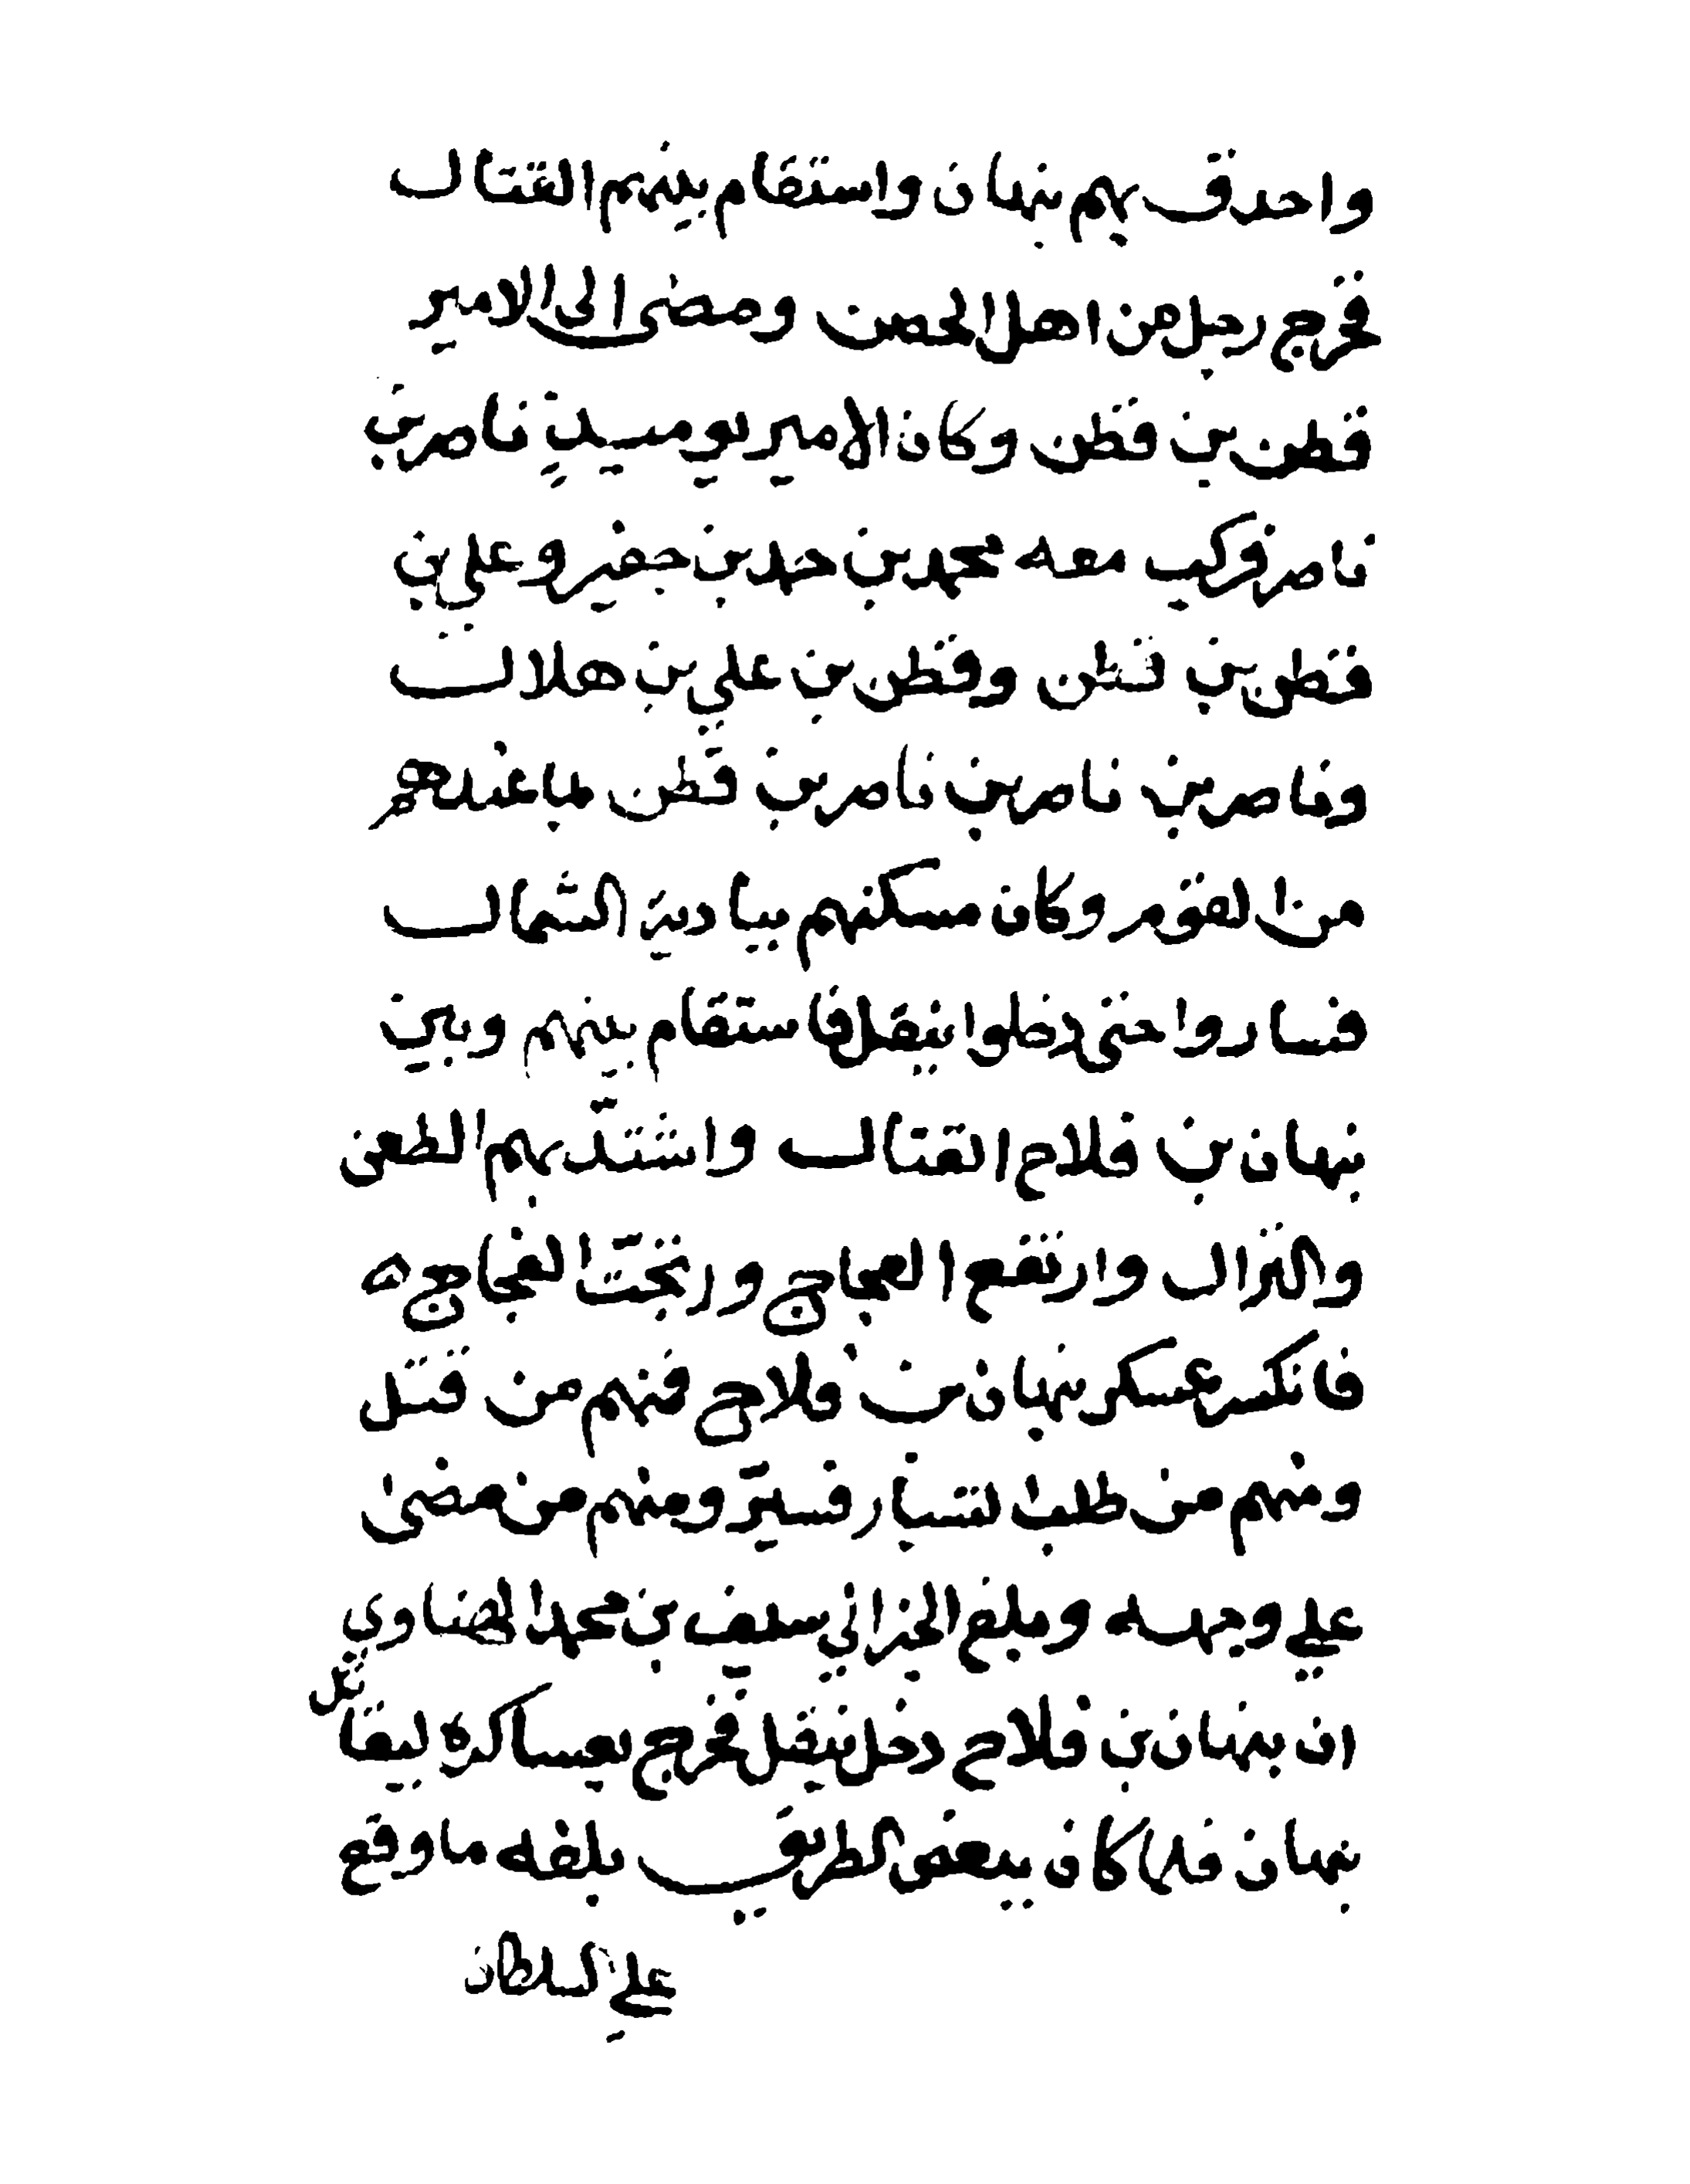 واحدق بهم نبهان واستقام بينهم القتال
فخرج رجل من اهل الحصن ومضى الى الامير
قطن بن قطن وكان الامير يوميذٍ ناصر بن
ناصر فركب معه محمد بن حمد بن جيفير وعلي بن
قطن بن قطن وقطن بن علي بن هلال
وناصر بن ناصر بن ناصر بن قطن بما عندهم
من القوم وكان مسكنهم ببادية الشمال
فساروا حتى دخلوا ينقل فاستقام بينهم وبين
نبهان بن فلاح القتال واشتدّ بهم الطعن
والنزال وارتفع العجاج ورتجّت الفجاج ه
فانكسر عسكر نبهان بن فلاح فمنهم من قتل
ومنهم من طلب التسيار فسيّر ومنهم من مضىٰ
علي وجهه وبلغ الخبر الي سيف بن محمد الهناوي
ان نبهان بن فلاح دخل ينقل فخرج بعساكره ليقاتل
نبهان فلما كان ببعض الطريق بلغه ما وقع
علي السلطان